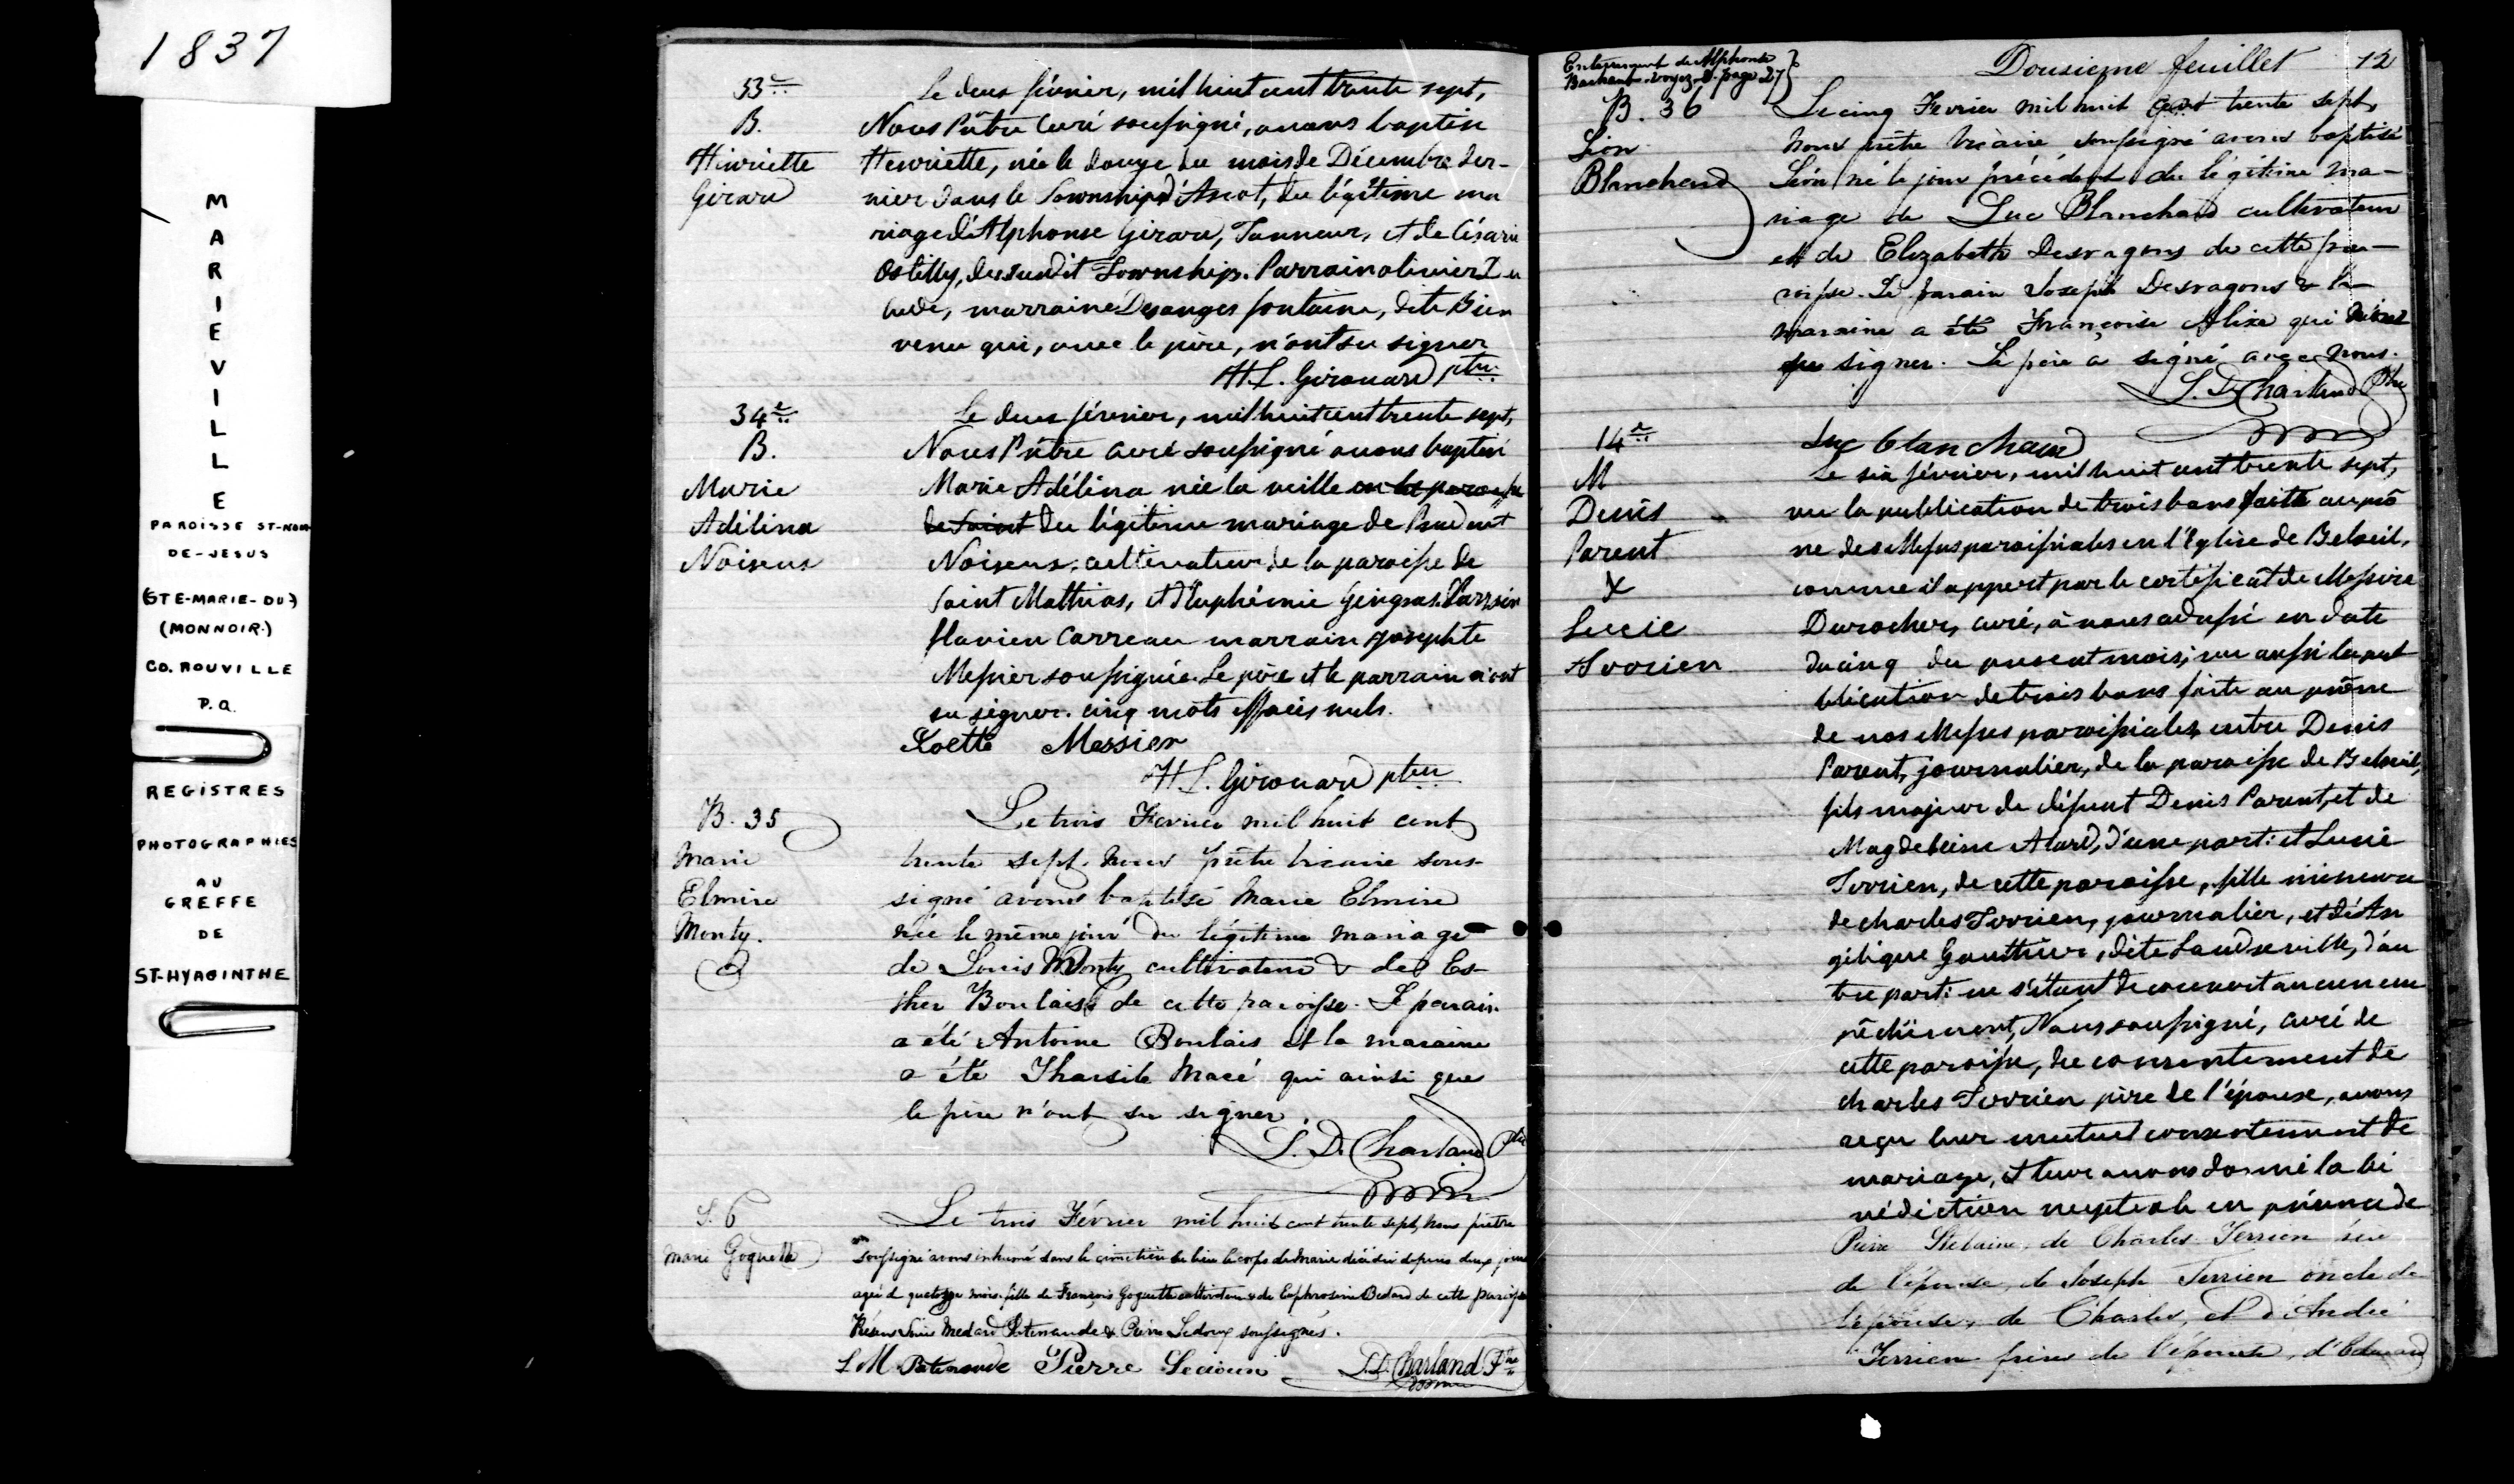 1837
M
A
R
I
E
V
I
L
L
E
PAROISSE ST-NOM
DE-JESUS
(STE-MARIE-DU)
(MONNOIR.)
CO. ROUVILLE
P.Q.
REGISTRES
PHOTOGRAPHIES
AU
GREFFE
DE
ST-HYACINTHE
33e
B.
Henriette
Girard
Le deux février, mil huit cent trente sept,
Nous Prêtre Curé soussigné, avons baptisé
Henriette, née le douze du mois de Décembre der-
nier dans le Township d'Ascot, du légitime ma
riage d'Alphonse Girard, Tanneur, et de Césarie
du susdit Township. Parrain olivier
marraine Desanges fontaine, dite Bien
venu qui, avec le père, n'ont su signer
H.L. Girouard ptre
34e
B.
Marie
Adélina
Noiseux
Le deux février, mil huit cent trente sept,
Nous Prêtre curé soussigné avons baptisé
Marie Adélina née la veille en la paroisse
de Saint du légitime mariage de Prudent
Noiseux, cultivateur de la paroisse de
Saint Mathias, et d'Euphémie Gingras. Parrain
flavien Carreau marraine Josephte
Messier soussignée. Le père et le parrain n'ont
su signer. cinq mots effacés nuls.
Xoette Messier
H L. Girouard ptre
B. 35
Marie
Elmire
Monty.
Le trois Fevrier mil huit cent
trente sept. Nous prêtre vicaire sous-
signé avons baptisé Marie Elmire
née le même jour du légitime mariage
de Louis Monty cultivateur & de Es-
ther Boulais de cette paroisse. Le parain
a été Antoine Boulais et la maraine
a été Tharsile Macé qui ainsi que
le père n'ont su signer.
L. D. Charland Ptre
S. 6
Marie Goguette
Le trois Février mil huit cent trente sept, nous prêtre
soussigné avons inhumé dans le cimetière du lieu le corps de Marie décédée depuis deux jours
agée de quatorze mois. fille de François Goguette cultivateur & de Euphrosine Bedard de cette paroisse
Présens Louis Medard Patenaude & Pierre Ledoux soussignés.
L M Patenaude Pierre Ledoux L.D. Charland Ptre
Enterrement de Alphonse
voyez page 27
Dousieme feuillet 12
B. 36
Léon
Blanchard
Le cinq Fevrier mil huit cent trente sept,
Nous prêtre vicaire soussigné avons baptisé
Léon né le jour précédent du légitime ma-
riage de Luc Blanchard cultivateur
et de Elizabeth Desragons de cette pa-
roisse. Le parain Joseph Desragons & la
maraine a été Françoise Alixe qui n'ont
su signer. Le père a signé avec nous.
L. D. Charland Ptre
Luc blanchard
14e
M
Denis
Parent
X
Lucie
Terrien
Le six février, mil huit cent trente sept,
vu la publication de trois bans faite au prô
ne des Messes paroissiales en l'Eglise de Beloeil,
comme il appert par le certificat de Messire
Durocher, curé, à nous adressé en date
du cinq du present mois; vu aussi la pub
blication de trois bans faite au prône
de nos Messes paroissiales, entre Denis
Parent, journalier, de la paroisse de Beloeil,
fils majeur de défunt Denis Parent, et de
Magdeleine Alard, d'une part: et Lucie
Terrien, de cette paroisse, fille mineure
de charles Terrien, journalier, et d'An
gélique Gauthier, dite Landreville, d'au
tre part: ne s'étant decouvert aucun em
pêchement, Nous soussigné, curé de
cette paroisse, du consentement de
charles Terrien père de l'épouse, avons
reçu leur mutuel consentement de
mariage, et leur avons donné la bé
nédiction nuptiale en présence de
Pierre de Charles Terrien père
de l'épouse, de Joseph Terrien oncle de
l'épouse, de Charles, et d'André
Terrien frères de l'épouse, d'Edouard